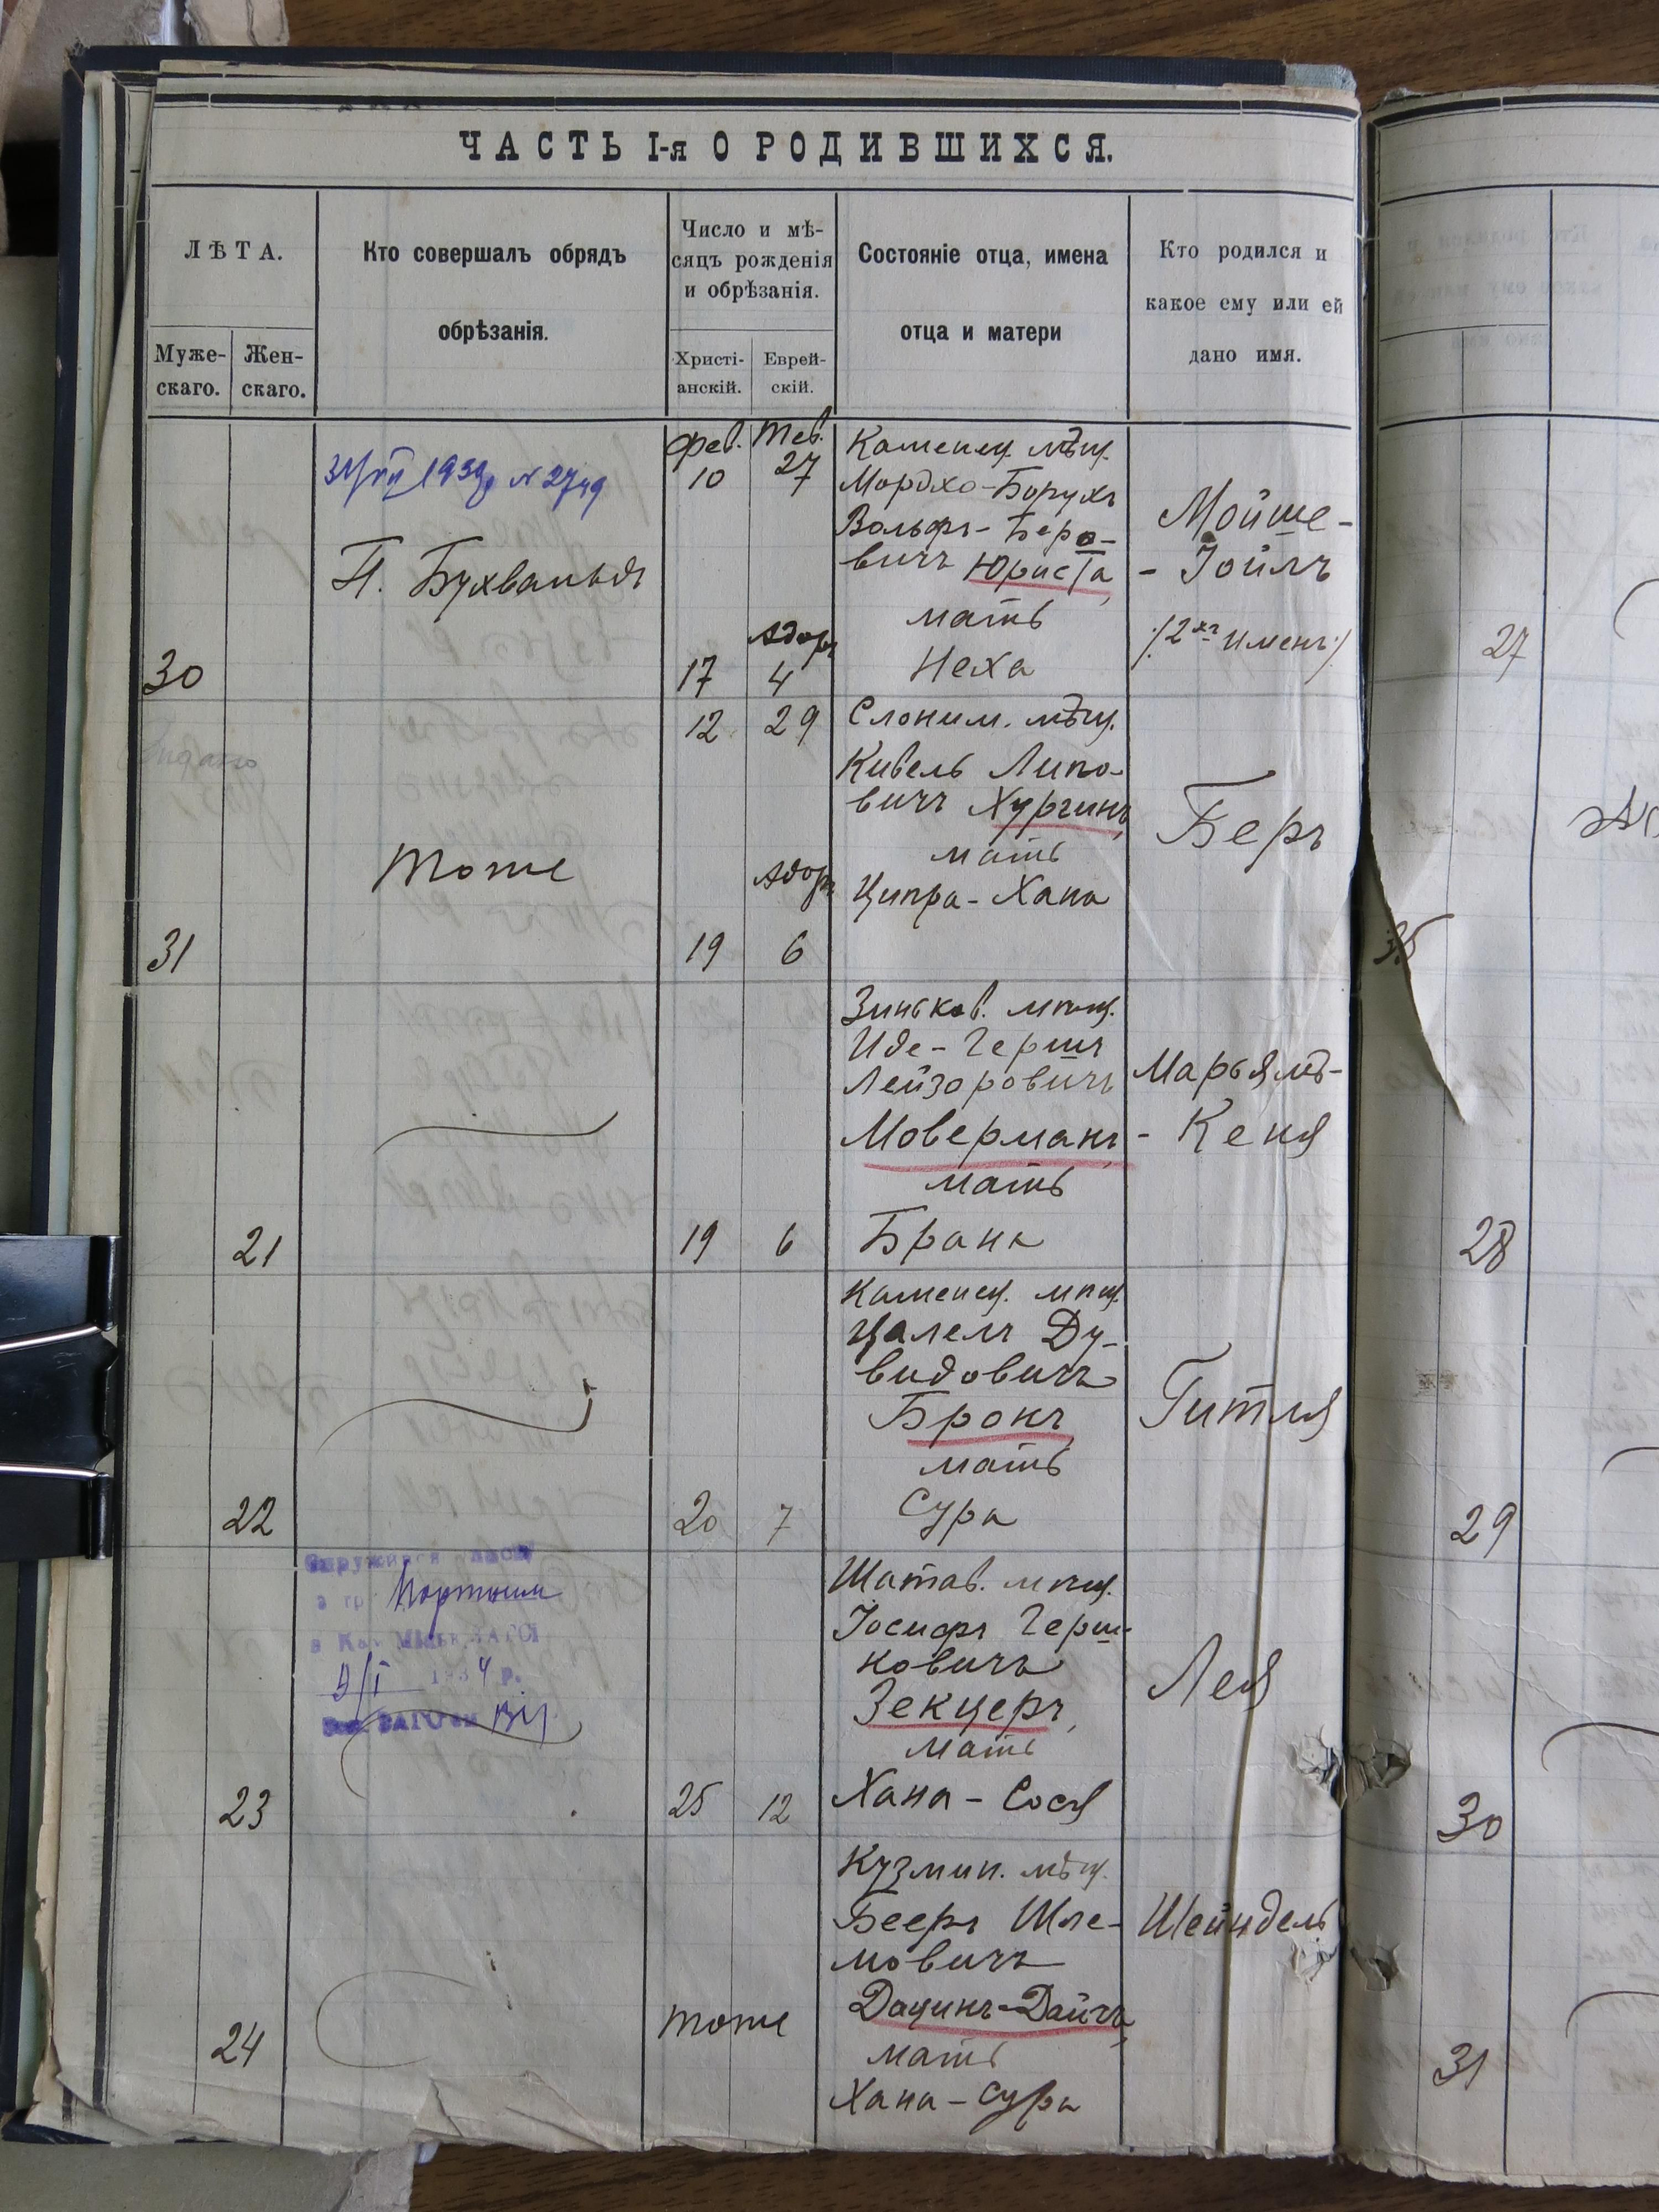 ЧАСТЬ I-я О РОДИВШИХСЯ.
ЛѢТА.
Муже-
скаго.
Жен-
скаго.
Кто совершалъ обрядъ
обрѣзанія.
Число и мѣ-
сяцъ рожденія
и обрѣзанія.
Христі-
анскій.
Еврей-
скій.
Состояніе отца, имена
отца и матери
Кто родился и
какое ему или ей
дано имя.
30
П. Бухвальдъ
Фев. Тев.
10 27
Адаръ
17 4
Каменец. мѣщ.
Мордхо-Борухъ
Вольфъ-Беро-
вичъ Юриста,
мать
Неха
Мойше-
-Іойлъ
/2хъ именъ/
31
тоже
12 29
Адаръ
19 6
Слоним. мѣщ.
Кивель Липо-
вичъ Хургинъ,
мать
Ципра-Хана
Беръ
21
19 6
Зиньков. мѣщ.
Иде-Гершъ
Лейзоровичъ
Моверманъ,
мать
Брана
Марьямъ-
-Кеня
22
20 7
Каменец. мѣщ.
Цалелъ Ду-
видовичъ
Бронъ,
мать
Сура
Гитля
23
25 12
Шатав. мѣщ.
Іосифъ Герш-
ковичъ
Зекцеръ,
мать
Хана-Сося
Лея
24
тоже
Кузмин. мѣщ.
Бееръ Шле-
мовичъ
Дацинъ-Дайчъ,
мать
Хана-Сура
Шейндель
27
35
28
29
30
31